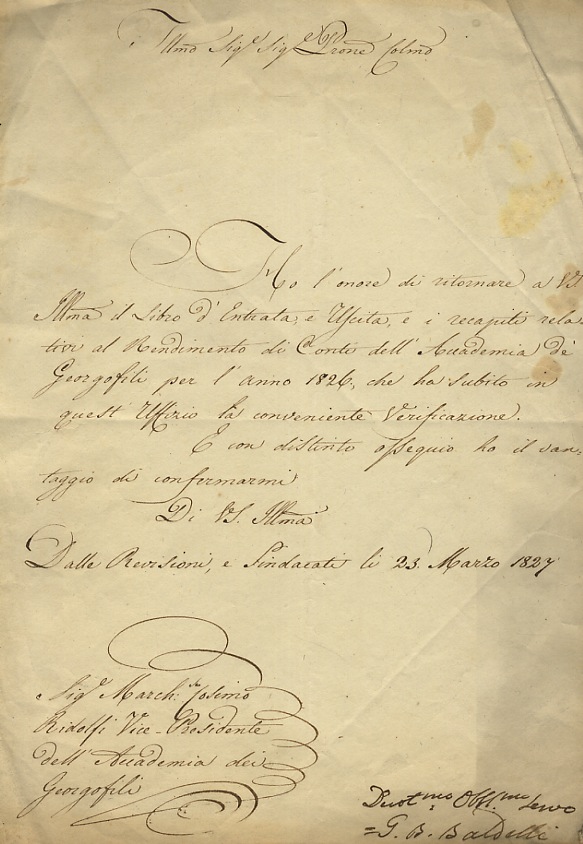 Illmo Sigr Sigr Prone Colmo
Ho l'onore di ritornare a VS
Illma il Libro d'Entrata, e Uscita, e i recapiti rela-
tivi al Rendimento di Conti dell'Accademia de'
Georgofili per l'anno 1826, che ha subito in
quest'Uffizio la conveniente Verificazione.
E con distinto ossequio ho il van-
taggio di confermarmi
Di VS. Illma
Dalle Revisioni, e Sindacati li 23. Marzo 1827
Sigr March: Cosimo
Ridolfi Vice-Presidente
dell'Accademia dei
Georgofili
Devotmo Obblmo Servo
=G. B. Baldelli